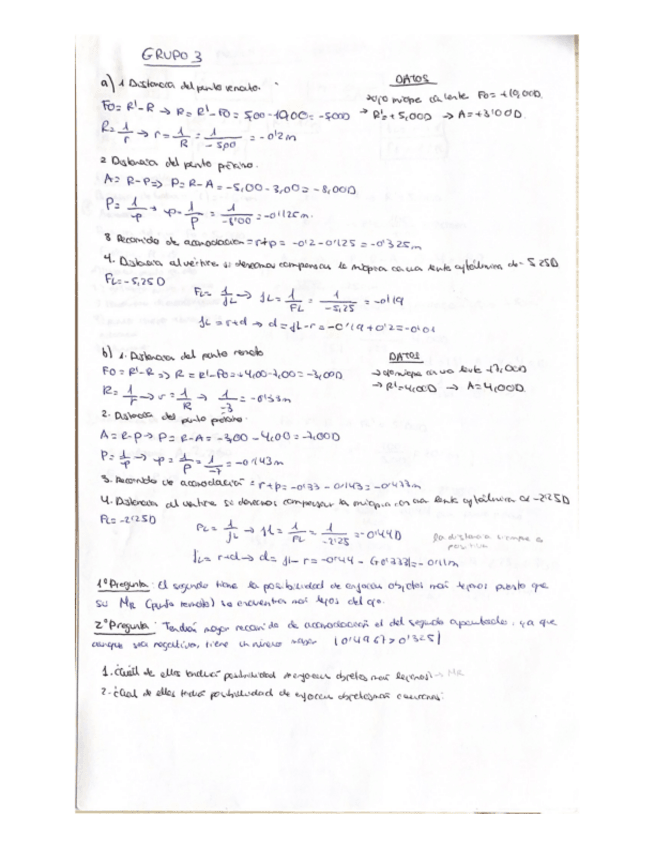 GRUPO 3
a) 1 Distancia del punto remoto.
DATOS
FO = R' - R → R = R' - FO = 5,00 - 10,00 = -5,00D
→ ojo miope con lente FO = +10,00D
→ R' = +5,00D → A = +3'00D
R = 1/r → r = 1/R = 1/-5,00 = -0'2m
2 Distancia del punto próximo.
A = R - P => P = R - A = -5,00 - 3,00 = -8,00D
P = 1/p → p = 1/P = 1/-8'00 = -0'125m.
3 Recorrido de acomodación = r+p = -0'2 - 0'125 = -0'325m
4. Distancia al vértice si deseamos compensar la miopia con una lente oftálmica de -5'25D
FL = -5,25D
FL = 1/fL → fL = 1/FL = 1/-5,25 = -0'19
fL = r+d → d = fL - r = -0'19 + 0'2 = -0'01
b) 1. Distancia del punto remoto
DATOS
FO = R' - R => R = R' - FO = +4,00 - 7,00 = -3,00D
→ ojo miope con una lente +7,00D
→ R' = 4,00D → A = 4,00D
R = 1/r → r = 1/R → 1/-3 = -0'33m
2. Distancia del punto próximo.
A = R - P → P = R - A = -3,00 - 4,00 = -7,00D
P = 1/p → p = 1/P = 1/-7 = -0'143m
3. Recorrido de acomodación = r+p = -0'33 - 0'143 = -0'473m
4. Distancia al vértice si deseamos compensar la miopia con una lente oftálmica de -2'25D
FL = -2'25D
FL = 1/fL → fL = 1/FL = 1/-2'25 = -0'44D
la distancia siempre positiva
fL = r+d → d = fL - r = -0'44
1º Pregunta: El segundo tiene la posibilidad de enfocar objetos más lejanos puesto que
su MR (punto remoto) se encuentra más lejos del ojo.
2º Pregunta: Tendrá mayor recorrido de acomodación el del segundo apartado, ya que
aunque sea negativo, tiene un número mayor |0'496| > 0'325|
1. ¿Cuál de ellos tendrá posibilidad de enfocar objetos más lejanos? → MR
2. ¿Cual de ellos tendrá posibilidad de enfocar objetos más cercanos?